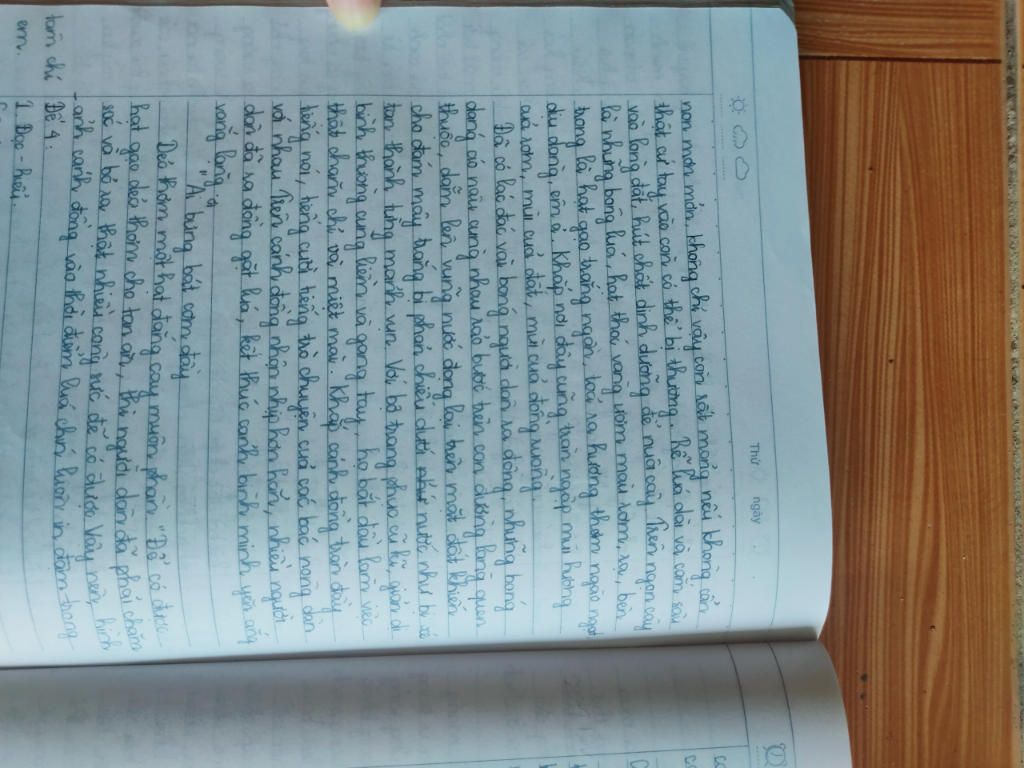 Thứ ngày
mơn mởn, không chỉ vậy còn rất mỏng nếu không cẩn
thật cứ tay vào còn có thể bị thương. Rễ lúa dài và cắm sâu
vào lòng đất, hút chất dinh dưỡng để nuôi cây. Trên ngọn cây
là những bông lúa, hạt thóc vàng ươm màu rơm, rạ, bên
trong là hạt gạo trắng ngần, toả ra hương thơm ngào ngạt
dịu dàng, êm ả. Khắp nơi đây cũng tràn ngập mùi hương
của rơm, mùi của đất, mùi của đồng ruộng.
Đã có lác đác vài bóng người dân ra đồng, những bóng
dáng ai nấy cùng nhau rảo bước trên con đường làng quen
thuộc, dẫm lên vũng nước đọng lại bên mặt đất khiến
cho đám mây trắng bị phản chiếu dưới nước như bị xé
tan thành từng mảnh vụn. Với bộ trang phục cũ kĩ, giản dị
bình thường cùng liềm và găng tay, họ bắt đầu làm việc
thật chăm chỉ và miệt mài. Khắp cánh đồng tràn đầy
tiếng nói, tiếng cười, tiếng trò chuyện của các bác nông dân
với nhau. Trên cánh đồng nhộn nhịp hơn hẳn, nhiều người
dân đã ra đồng gặt lúa, kết thúc cảnh bình minh yên ắng
vắng lặng.
"Ai bưng bát cơm đầy
Dẻo thơm một hạt đắng cay muôn phần". Để có được
hạt gạo dẻo thơm cho ta ăn, thì người dân đã phải chăm
sóc và bỏ ra thật nhiều công sức để có được. Vậy nên, hình
ảnh cánh đồng vào thời điểm lúa chín luôn in đậm trong
tâm chí
em.
Đề 4:
1. Đọc - hiểu.